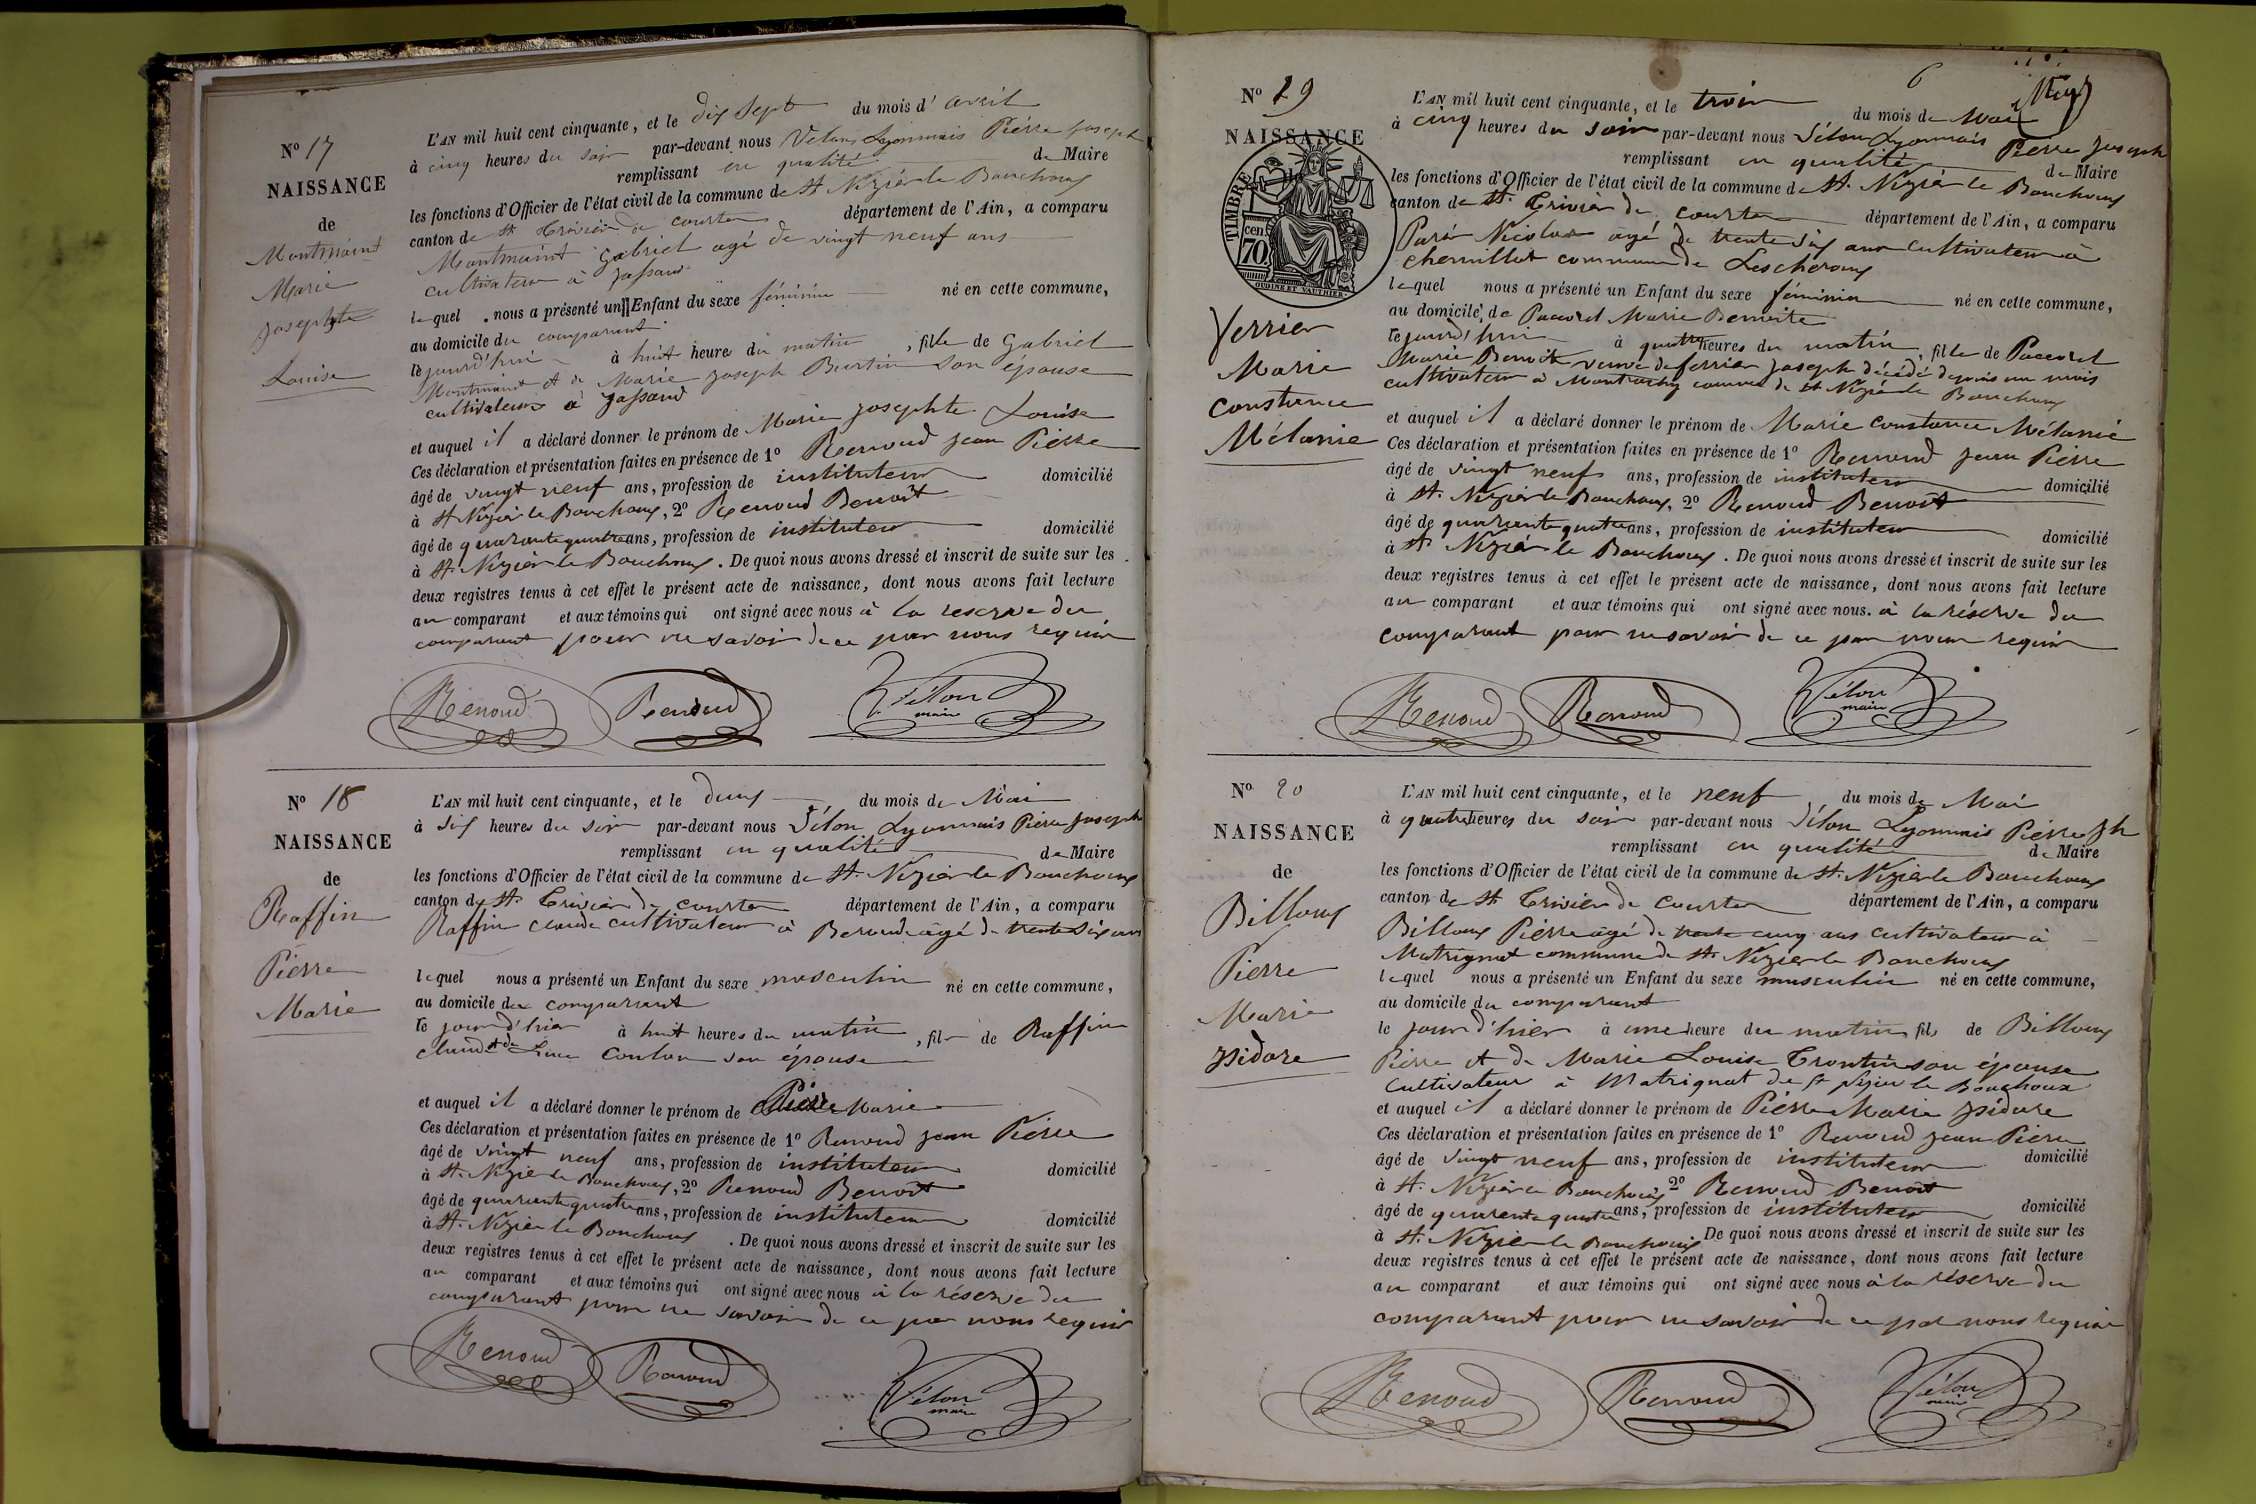 N° 17
NAISSANCE
de
Montmaint
Marie
Josephte
Louise
L'AN mil huit cent cinquante, et le dix sept du mois d'avril
à cinq heures du soir par-devant nous Vélon Lyonnais Pierre Joseph
remplissant en qualité de Maire
les fonctions d'Officier de l'état civil de la commune de St Nizier le Bouchoux
canton de St Trivier de courtes département de l'Ain, a comparu
Montmaint Gabriel agé de vingt neuf ans
cultivateur à
lequel nous a présenté un Enfant du sexe féminin né en cette commune,
au domicile du comparant
le jourd'hui à huit heure du matin, fille de Gabriel
Montmaint et de Marie Joseph Burtin son épouse
cultivateurs à
et auquel il a déclaré donner le prénom de Marie Josephte Louise
Ces déclaration et présentation faites en présence de 1° Renoud Jean Pierre
âgé de vingt neuf ans, profession de instituteur domicilié
à St Nizier le Bouchoux, 2° Renoud Benoît
âgé de quarante quatre ans, profession de instituteur domicilié
à St Nizier le Bouchoux. De quoi nous avons dressé et inscrit de suite sur les
deux registres tenus à cet effet le présent acte de naissance, dont nous avons fait lecture
au comparant et aux témoins qui ont signé avec nous à la reserve du
comparant pour ne savoir de ce par nous requis
Renoud Renoud Vélon
maire
N° 18
NAISSANCE
de
Raffin
Pierre
Marie
L'AN mil huit cent cinquante, et le deux du mois de Mai
à six heures du soir par-devant nous Vélon Lyonnais Pierre Joseph
remplissant en qualité de Maire
les fonctions d'Officier de l'état civil de la commune de St. Nizier le Bouchoux
canton de St Trivier de courtes département de l'Ain, a comparu
Raffin claude cultivateur à agé de trente six ans
lequel nous a présenté un Enfant du sexe masculin né en cette commune,
au domicile du comparant
le jour d'hier à huit heures du matin, fils de Raffin
claude et de Coulon son épouse
et auquel il a déclaré donner le prénom de Pierre Marie
Ces déclaration et présentation faites en présence de 1° Renoud Jean Pierre
âgé de vingt neuf ans, profession de instituteur domicilié
à St. Nizier le Bouchoux, 2° Renoud Benoît
âgé de quarante quatre ans, profession de instituteur domicilié
à St. Nizier le Bouchoux. De quoi nous avons dressé et inscrit de suite sur les
deux registres tenus à cet effet le présent acte de naissance, dont nous avons fait lecture
au comparant et aux témoins qui ont signé avec nous à la réserve du
comparant pour ne savoir de ce par nous requis
Renoud Renoud Vélon
maire
6
N° 19
NAISSANCE
TIMBRE
cen
70
OUDINÉ ET VAUTHIER
Verrier
Marie
Constance
Mélanie
L'AN mil huit cent cinquante, et le trois du mois de Mai
à cinq heures du soir par-devant nous Vélon Lyonnais Pierre Joseph
remplissant en qualité de Maire
les fonctions d'Officier de l'état civil de la commune de St. Nizier le Bouchoux
canton de St. Trivier de courtes département de l'Ain, a comparu
Nicolas agé de trente six ans cultivateur à
chemillat commune de Lescheroux
lequel nous a présenté un Enfant du sexe féminin né en cette commune,
au domicile, de Marie Benoite
le jourd'hui à quatre heures du matin, fille de
Marie Benoite veuve de ferrier Joseph décédé depuis un mois
cultivateur à commune de St Nizier le Bouchoux
et auquel il a déclaré donner le prénom de Marie constance Mélanie
Ces déclaration et présentation faites en présence de 1° Renoud Jean Pierre
âgé de vingt neuf ans, profession de instituteur domicilié
à St. Nizier le Bouchoux, 2° Renoud Benoît
âgé de quarante quatre ans, profession de instituteur domicilié
à St Nizier le Bouchoux. De quoi nous avons dressé et inscrit de suite sur les
deux registres tenus à cet effet le présent acte de naissance, dont nous avons fait lecture
au comparant et aux témoins qui ont signé avec nous. à la réserve du
comparant pour ne savoir de ce par nous requis
Renoud Renoud Vélon
maire
N° 20
NAISSANCE
de
Billoux
Pierre
Marie
Isidore
L'AN mil huit cent cinquante, et le neuf du mois de Mai
à quatre heures du soir par-devant nous Vélon Lyonnais Pierre Jh
remplissant en qualité de Maire
les fonctions d'Officier de l'état civil de la commune de St. Nizier le Bouchoux
canton de St Trivier de Courtes département de l'Ain, a comparu
Billoux Pierre agé de trente cinq ans cultivateur à
Matrignat commune de St. Nizier le Bouchoux
lequel nous a présenté un Enfant du sexe masculin né en cette commune,
au domicile du comparant
le jour d'hier à une heure du matin, fils de Billoux
Pierre et de Marie Louise Trontin son épouse
cultivateurs à Matrignat de St Nizier le Bouchoux
et auquel il a déclaré donner le prénom de Pierre Marie Isidore
Ces déclaration et présentation faites en présence de 1° Renoud Jean Pierre
âgé de vingt neuf ans, profession de instituteur domicilié
à St. Nizier le Bouchoux 2° Renoud Benoît
âgé de quarante quatre ans, profession de instituteur domicilié
à St. Nizier le Bouchoux De quoi nous avons dressé et inscrit de suite sur les
deux registres tenus à cet effet le présent acte de naissance, dont nous avons fait lecture
au comparant et aux témoins qui ont signé avec nous à la réserve du
comparant pour ne savoir de ce par nous requis
Renoud Renoud Vélon
maire